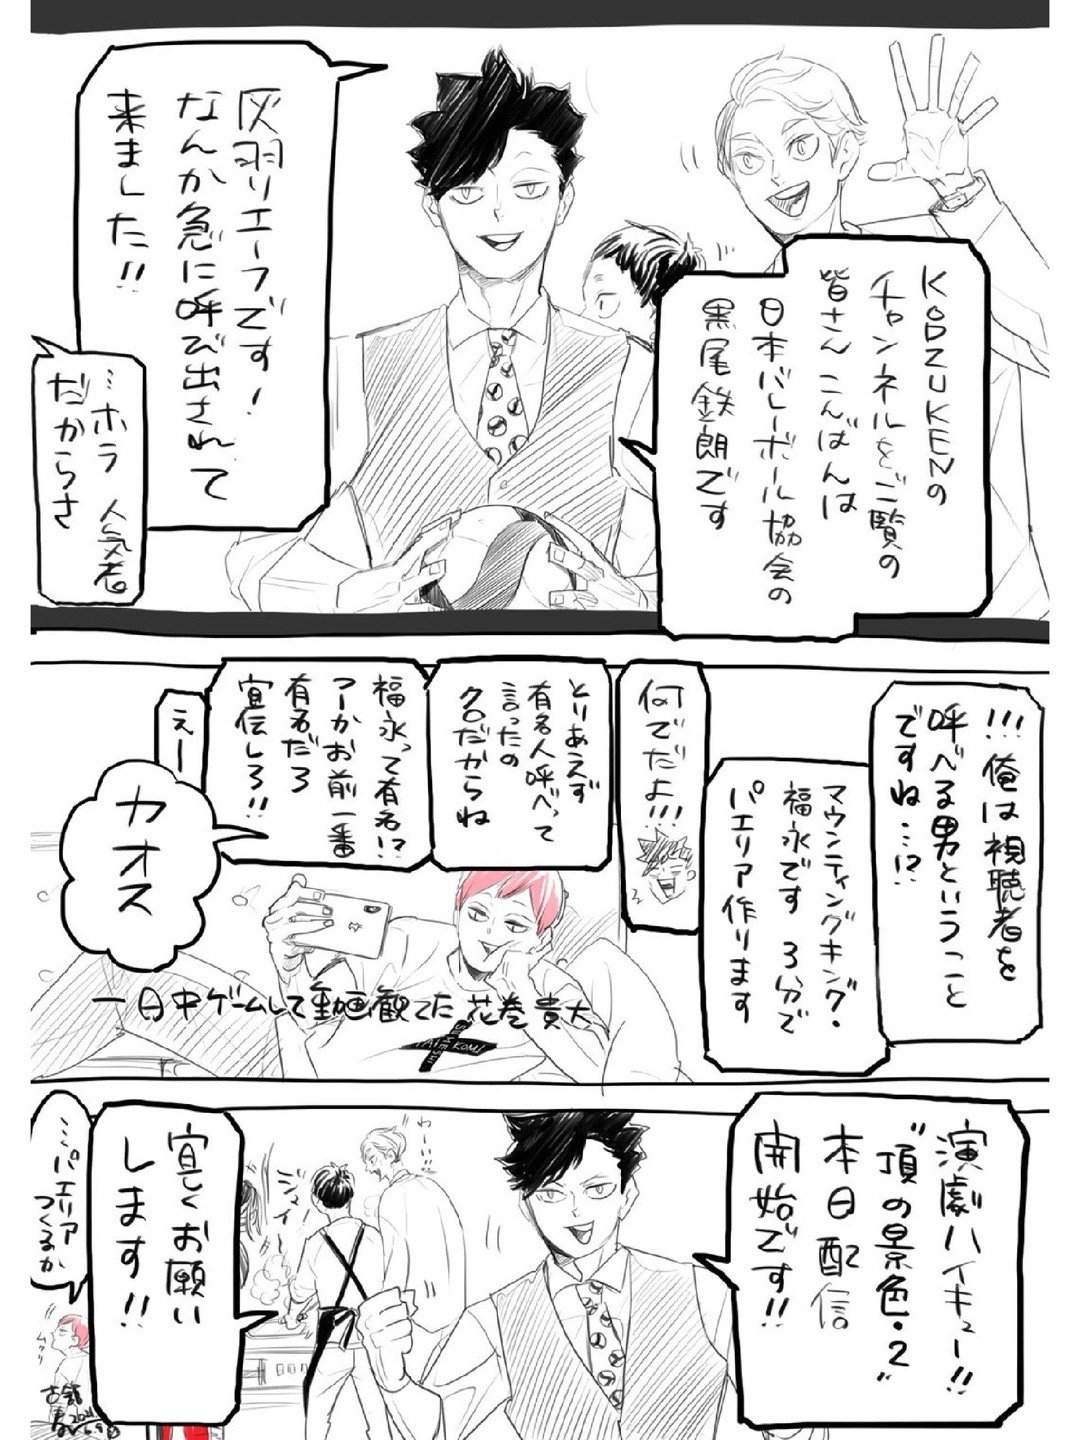 KODZUKENの
チャンネルをご覧の
皆さんこんばんは
日本バレーボール協会の
黒尾鉄朗です
灰羽リエーフです!
なんか急に呼び出されて
来ました!!
…ホラ 人気者
だからさ
!!! 俺は視聴者を
呼べる男ということ
ですね…!?
マウンティングキング・
福永です 3分で
パエリア作ります
何でだよ!!!
とりあえず
有名人呼べって
言ったの
クロだからね
福永って有名!?
つーかお前一番
有名だろ
宣伝しろ!!
えー
カオス
一日中ゲームして動画観てた 花巻貴大
TAKE
KOMI
演劇ハイキュー!!
"頂の景色・2"
本日配信
開始です!!
わー
ジャイ
宜しくお願い
します!!
…パエリア
つくるか
ムクリ
古舘
春
2021